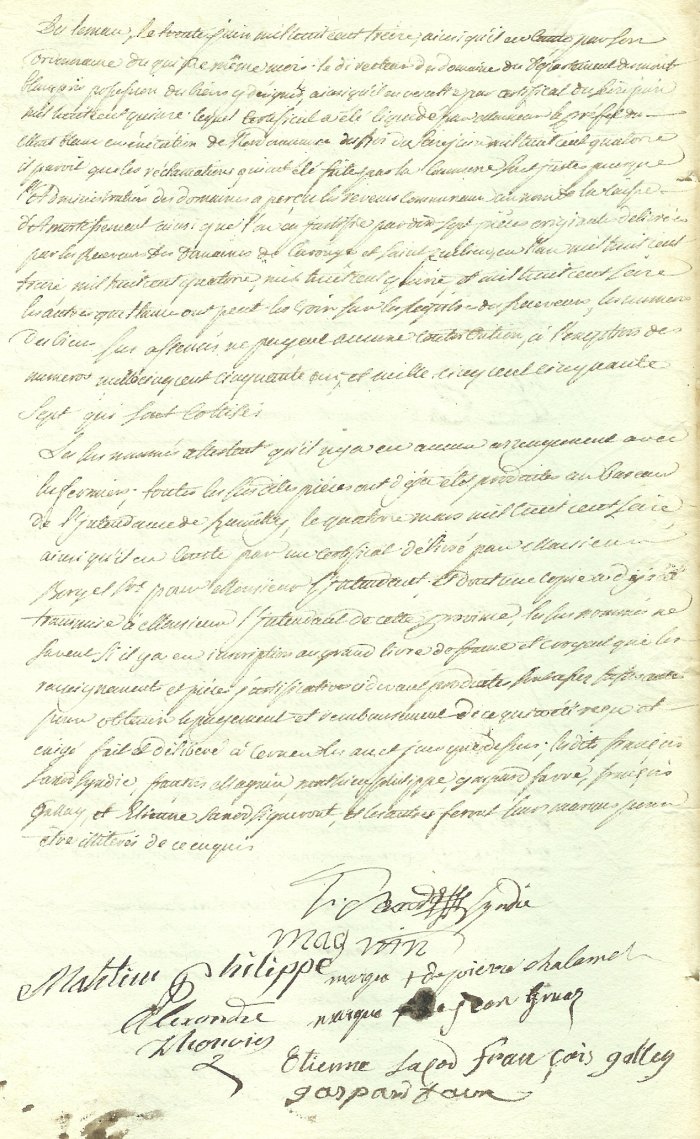 Du leman, le trente juin mil huit cent treize, ainsi qu'il en conste par son
ordonnance du quinze même mois. le directeur des domaines du département du mont
blanc prit possession des biens y désignés, ainsi qu'il en conste par certificat du juin
mil huit cent quinze lequel certificat a été par monsieur le préfet du
Mont blanc en exécution de l'ordonnance du mil huit cent quatorze
il paroit que les réclamations qui ont été faites par la Commune sont justes puisque
l'Administration des domaines a perçu les revenus communaux au nom de la caisse
d'Amortissement ainsi que l'on en justifie par dix sept pièces originales délivrées
par les Receveurs des domaines de Carouge et Saint Julien, en l'an mil huit cent
treize mil huit cent quatorze, mil huit cent quinze, et mil huit cent seize
les autres quittances ont peut les voir sur les registres des Receveurs, les numeros
des biens sus assencis ne payent aucune contribution, à l'exception des
numeros mille cinq cent cinquante six, et mille cinq cent cinquante
sept qui sont cottisés
Les sus nommés attestent qu'il n'y a eu aucun arrengement avec
les fermiers; toutes les susdites pièces ont déjà étés produites au bureau
de l'Intendance de Rumilly, le quatorze mars mil huit cent seize
ainsi qu'il en conste par un certificat délivré par Monsieur
Bory et pour Monsieur l'Intendant, et dont une copie a déjà été
transmise à Monsieur l'Intendant de cette province, les sus nommés ne
savent si il y a eu inscription au grand livre de france et croyent que les
renseignements et pièces justificatives ci devant produites
pour obtenir le payement et remboursement de ce qui a été reçu et
exigé fait et délibéré à Cernex les an et jour que dessus; lesdits françois
Sarod syndic, Magnin mathieu philippe, gaspard favre, françois
gallay, et Etienne Sarod signeront, et les autres feront leurs marques pour
être illiterés de ce enquis
Sarod syndic
magnin
Mathieu Philippe
marque + de pierre chalamel
marque + de jean
Alexandre
Etienne Sarod françois galley
gaspard favre